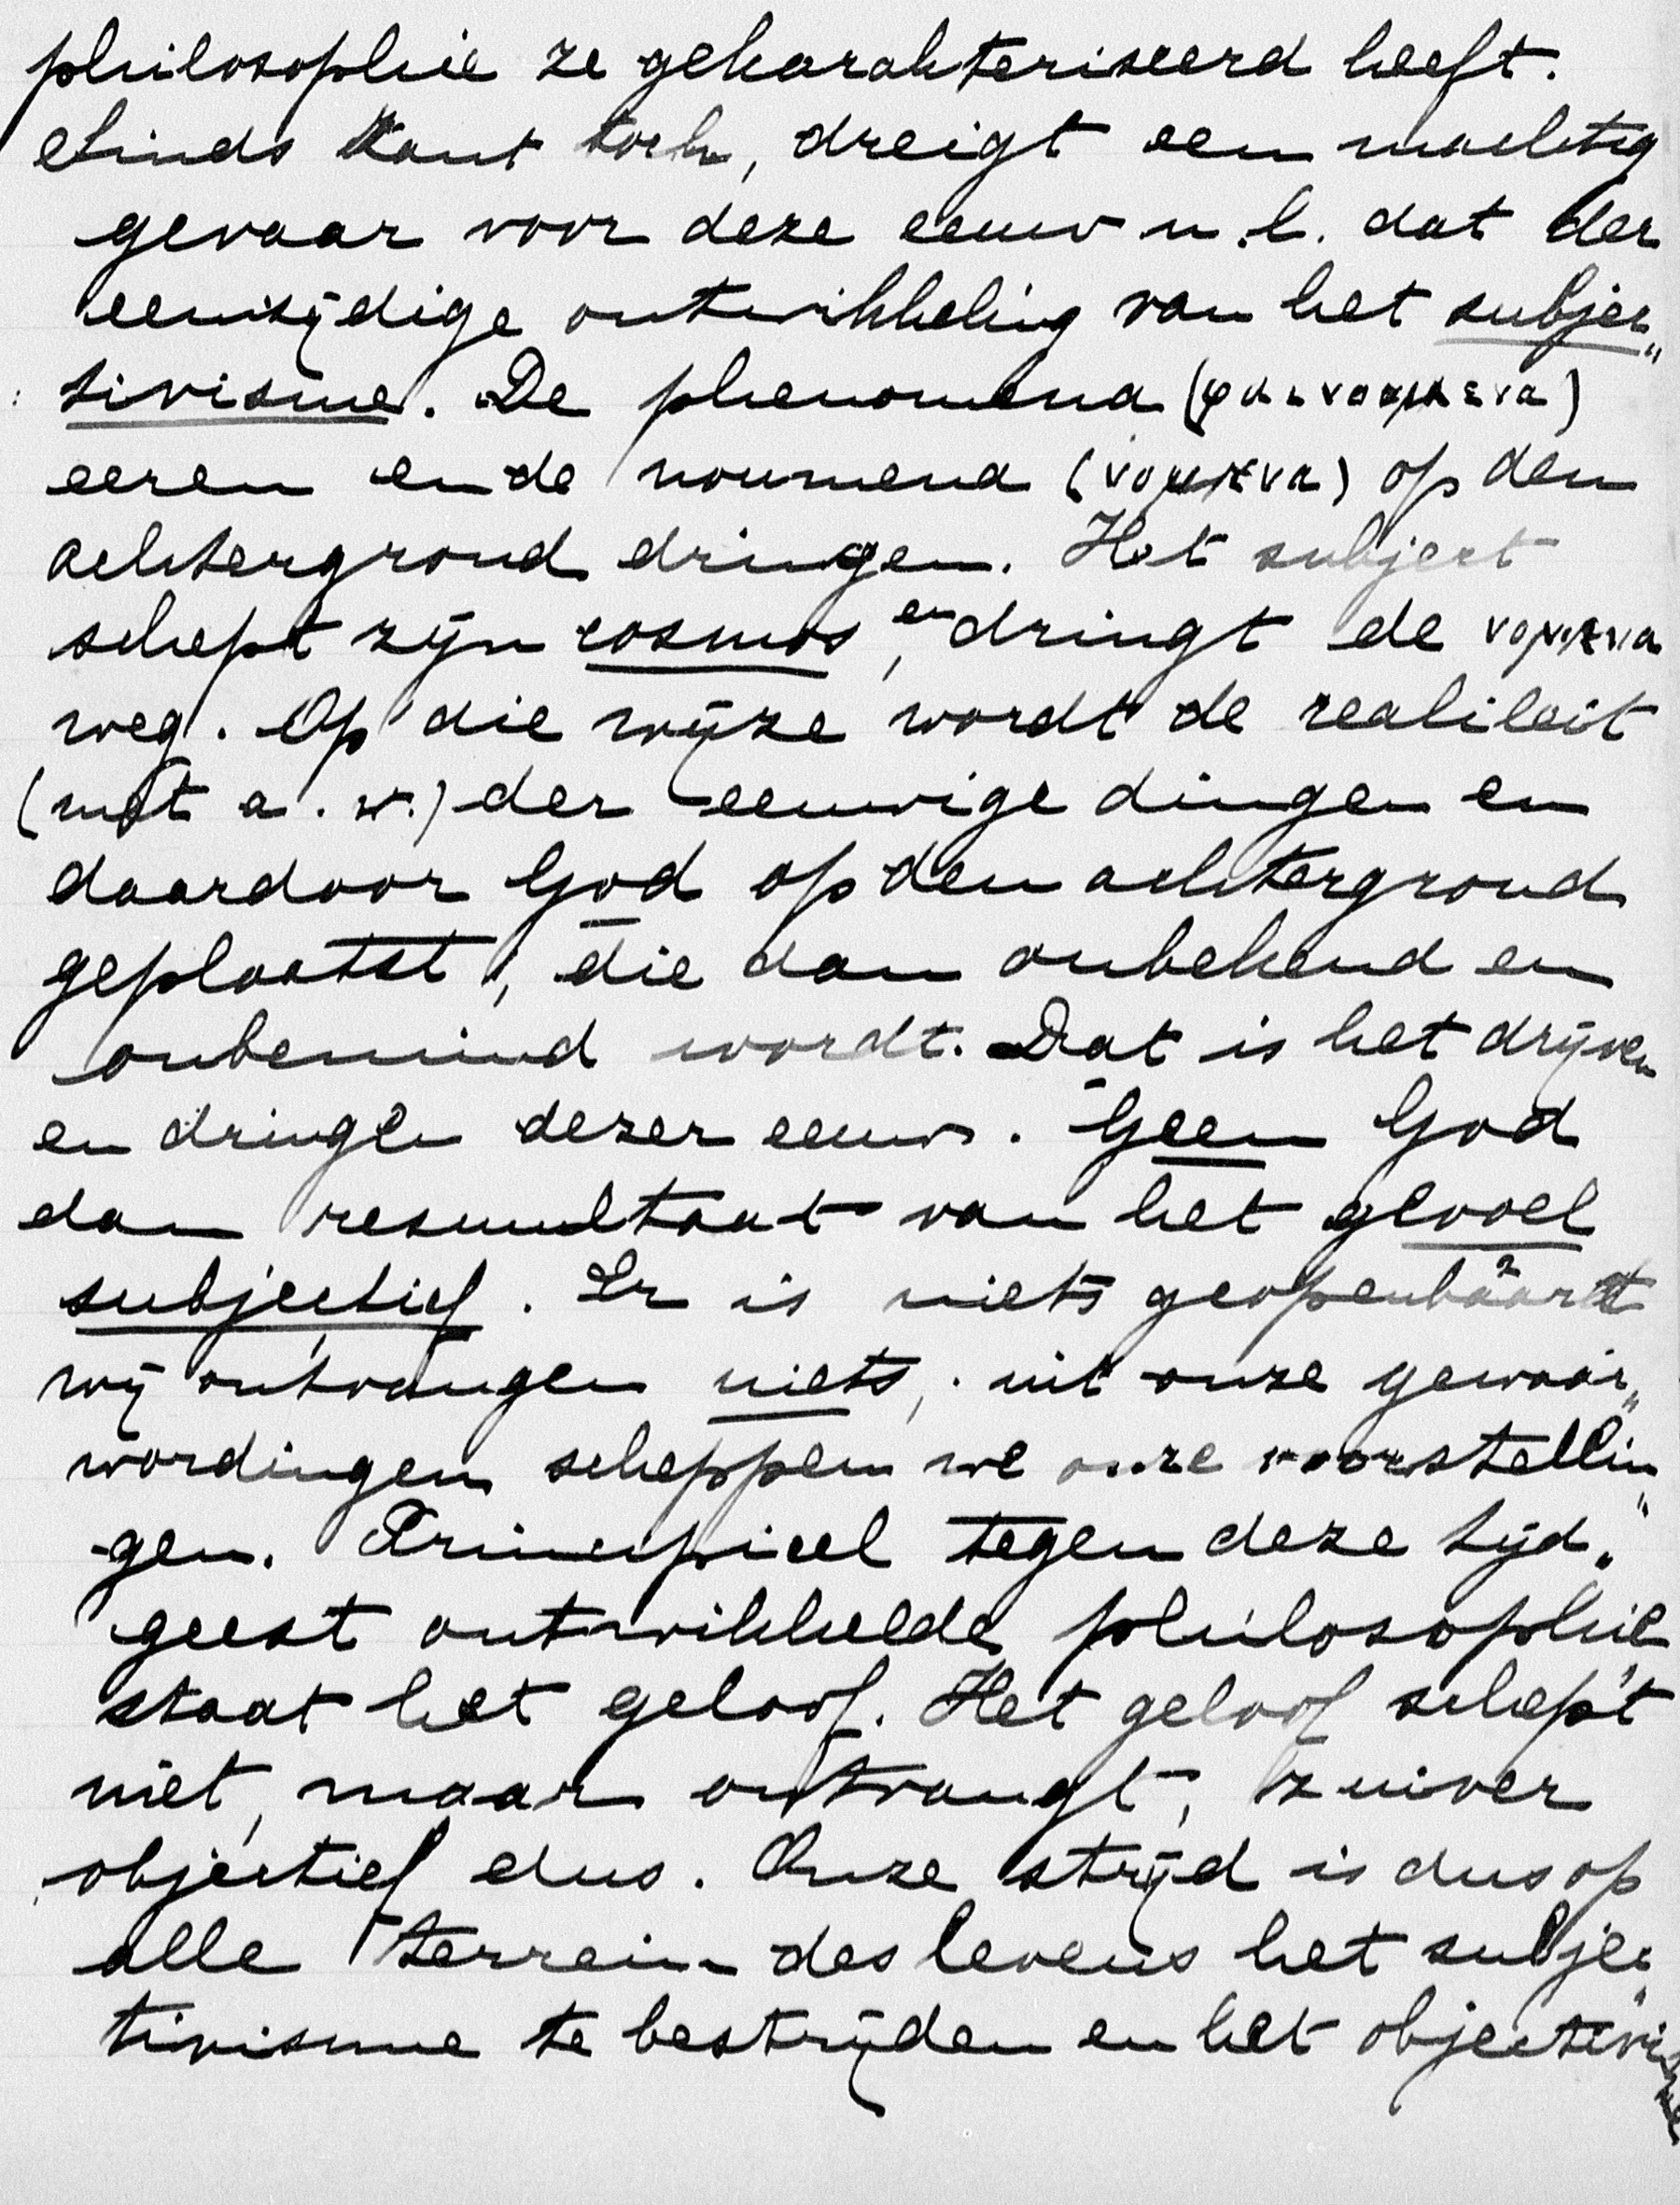 philosophie ze gekarakteriseerd heeft.
Sinds Kant toch, dreigt een machtig
gevaar voor deze eeuw n.l. dat der
eenzijdige ontwikkeling van het subjec„
tivisme. De phenomena (φαινομενα)
eeren en de noumena (νουμενα) op den
achtergrond dringen. Het subject
schept zijn cosmos, en dringt de νουμενα
weg. Op die wijze wordt de realiteit
(met a. w.) der eeuwige dingen en
daardoor God op den achtergrond
geplaatst, die dan onbekend en
onbemind wordt. Dat is het drijven
en dringen dezer eeuw. Geen God
dan resultaat van het gevoel
subjectief. Er is niets geopenbaard
wij ontvangen niets, uit onze gewaar„
wordingen scheppen we onze voorstellin„
gen. Principieel tegen deze tijd„
geest ontwikkelde philosophie
staat het geloof. Het geloof schept
niet, maar ontvangt, zuiver
objectief dus. Onze strijd is dus op
alle terrein des levens het subjec„
tivisme te bestrijden en het objectivisme